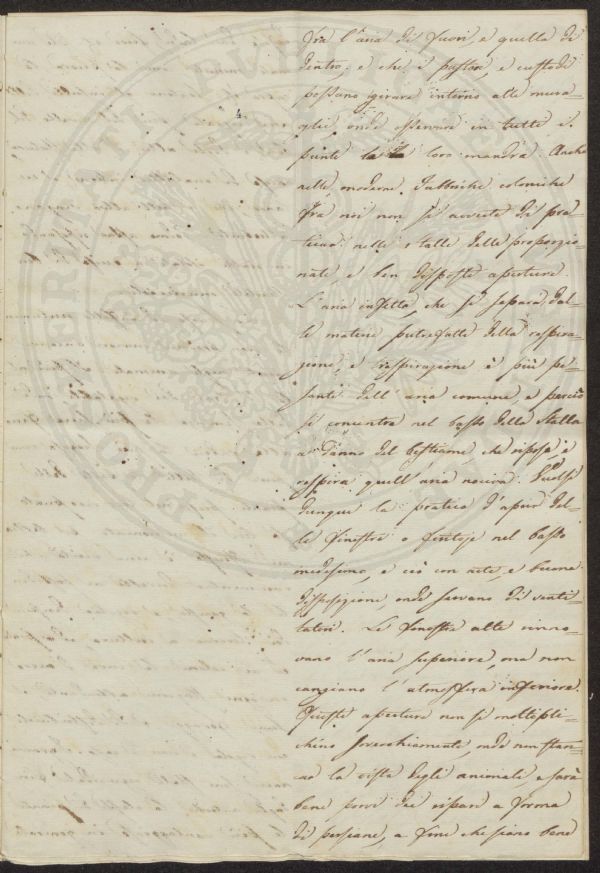 4.
fra l'aria di fuori, e quella di
dentro, e che i pastori, e custodi
possano girare intorno alle mura=
glie, onde osservare in tutti i
punti la loro mandra. Anche
nelle moderne fabbriche coloniche
fra noi non si avverte di pra=
ticare nelle stalle delle proporzio=
nate, e ben disposte aperture.
L'aria infetta, che si separa dal=
le materie putrefatte della respira=
zione, e traspirazione è più pe=
sante dell'aria comune, e perciò
si concentra nel basso della Stalla
a danno del bestiame, che riposa, e
respira quell'aria nociva. Vuolsi
dunque la pratica d'aprir del=
le finestre o fintoje nel basso
medesimo, e ciò con arte, e buona
disposizione, onde servano di venti=
latori. Le finestre alte rinno=
vano l'aria superiore, ma non
cangiano l'atmosfera inferiore.
Queste aperture non si moltipli=
chino soverchiamente, onde non stan=
care la vista degli animali, e sarà
bene porvi dei ripari a forma
di persiane, a fine che siano bene
PRO VERITATE PVB